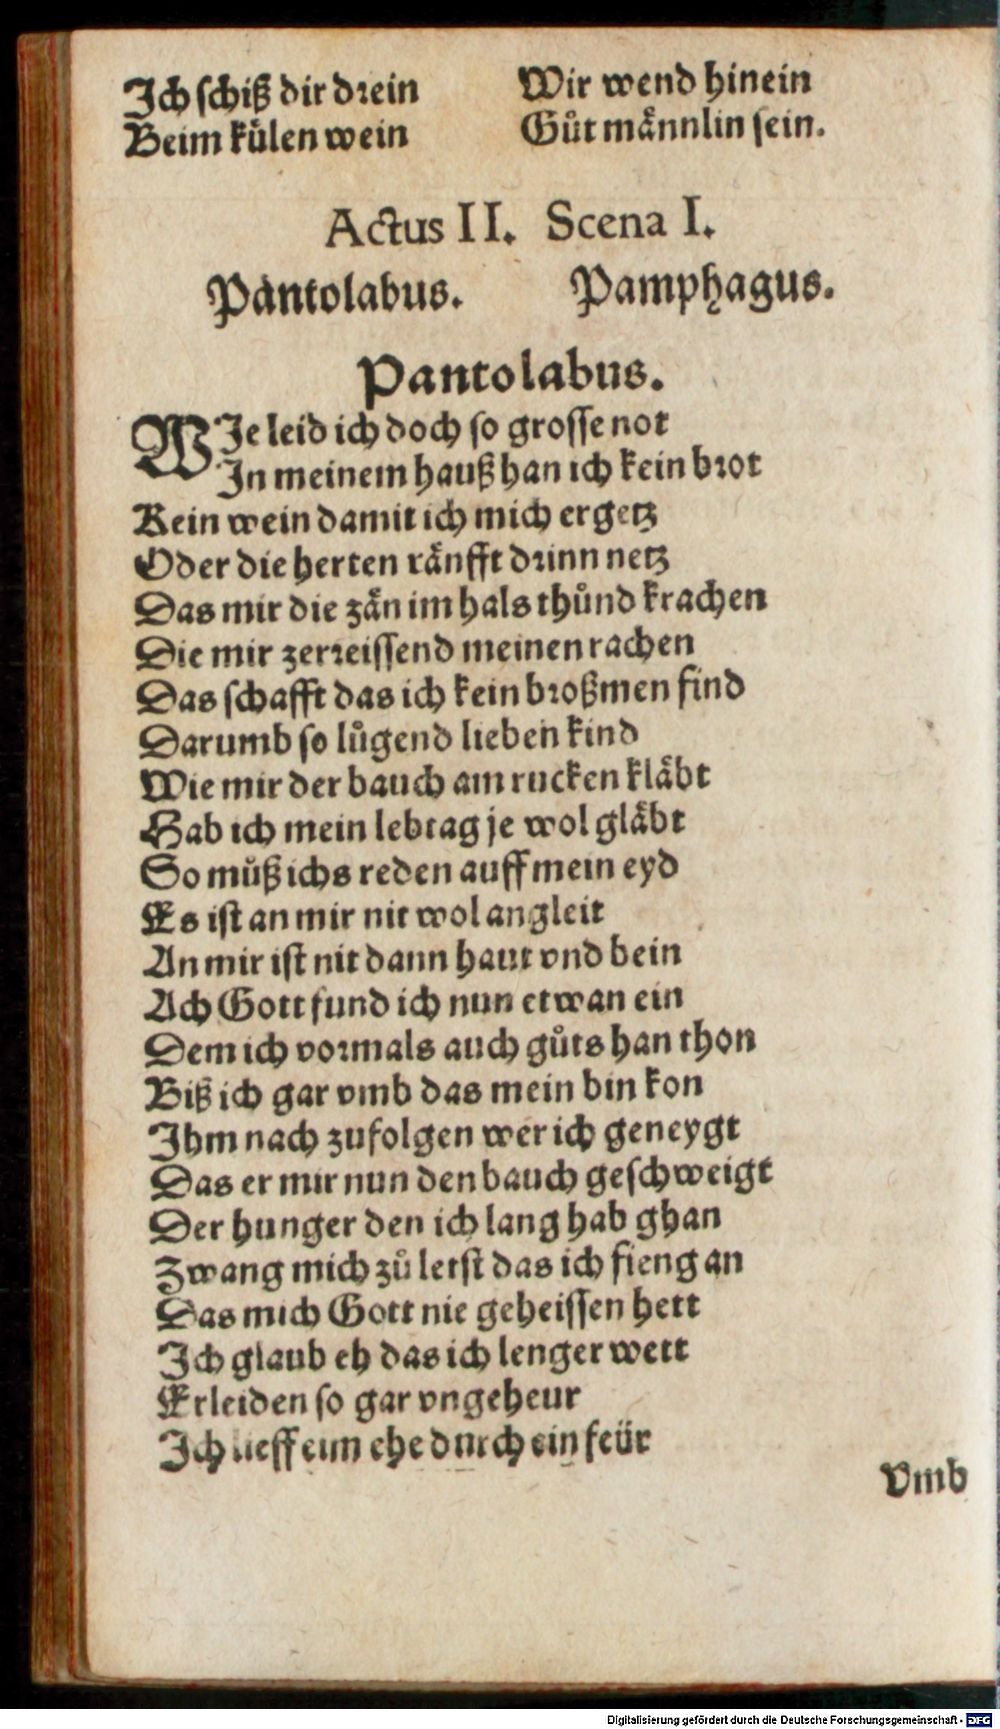 Ich schiß dir drein
Beim kuͤlen wein
Wir wend hinein
Guͦt maͤnnlin sein.
Actus II. Scena I.
Pantolabus. Pamphagus.
Pantolabus.
WIe leid ich doch so grosse not
In meinem hauß han ich kein brot
Kein wein damit ich mich ergetz
Oder die herten raͤnfft drinn netz
Das mir die zaͤn im hals thuͦnd krachen
Die mir zerreissend meinen rachen
Das schafft das ich kein broßmen find
Darumb so luͦgend lieben kind
Wie mir der bauch am rucken klaͤbt
Hab ich mein lebtag je wol glaͤbt
So muͦß ichs reden auff mein eyd
Es ist an mir nit wol angleit
An mir ist nit dann haut vnd bein
Ach Gott fund ich nun etwan ein
Dem ich vormals auch guͦts han thon
Biß ich gar vmb das mein bin kon
Ihm nach zufolgen wer ich geneygt
Das er mir nun den bauch geschweigt
Der hunger den ich lang hab ghan
Zwang mich zuͦ letst das ich fieng an
Das mich Gott nie geheissen hett
Ich glaub eh das ich lenger wett
Erleiden so gar vngeheur
Ich lieff eim ehe durch ein feür
Vmb
Digitalisierung gefördert durch die Deutsche Forschungsgemeinschaft - DFG